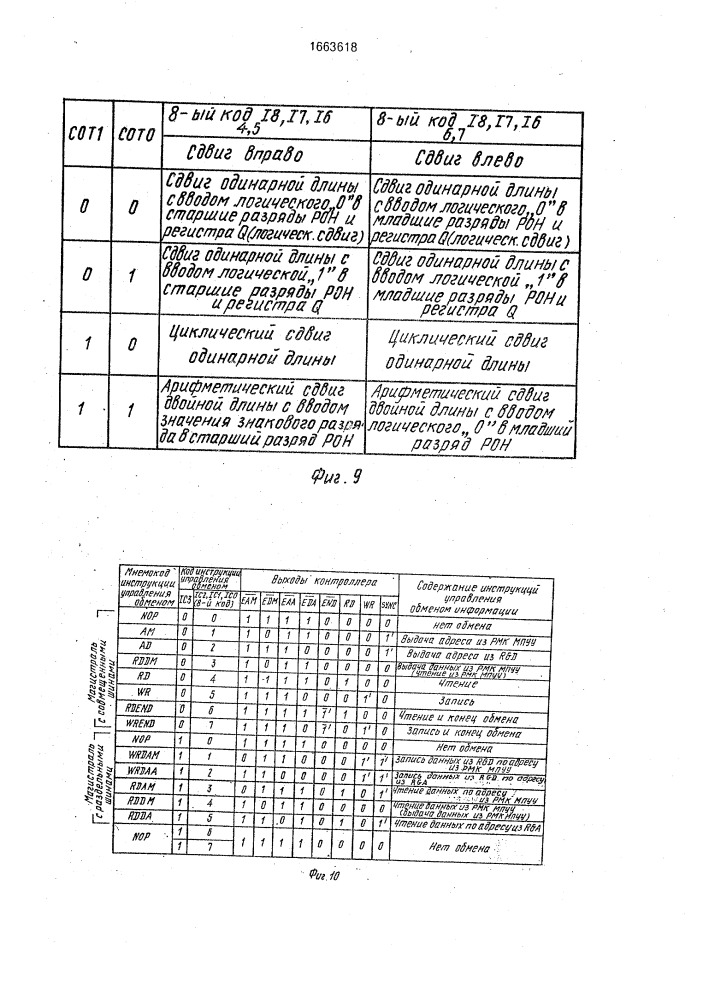 1663618
СОТ1 СОТ0 8-ый код I8, I7, I6 4,5 8-ый код I8, I7, I6 6,7
Сдвиг вправо Сдвиг влево
0 0 Сдвиг одинарной длины с вводом логического „0” в старшие разряды РОН и регистра Q (логическ. сдвиг) Сдвиг одинарной длины с вводом логического „0” в младшие разряды РОН и регистра Q (логическ. сдвиг)
0 1 Сдвиг одинарной длины с вводом логической „1” в старшие разряды РОН и регистра Q Сдвиг одинарной длины с вводом логической „1” в младшие разряды РОН и регистра Q
1 0 Циклический сдвиг одинарной длины Циклический сдвиг одинарной длины
1 1 Арифметический сдвиг двойной длины с вводом значения знакового разряда в старший разряд РОН Арифметический сдвиг двойной длины с вводом логического „0” в младший разряд РОН
Фиг. 9
Мнемокод инструкции управления обменом Код инструкции управления обменом Выходы контроллера Содержание инструкций управления обменом информации
IC3 IC2, IC1, IC0 (8-й код) EAM EDM EAA EDA END RD WR SYNC
Магистраль с совмещенными шинами
NOP 0 0 1 1 1 1 0 0 0 0 нет обмена
AM 0 1 1 0 1 1 0 0 0 1' Выдача адреса из РМК МПУУ
AD 0 2 1 1 1 0 0 0 0 1' Выдача адреса из RGD
RDDM 0 3 1 0 1 1 0 0 0 0 Выдача данных из РМК МПУУ (чтение из РМК МПУУ)
RD 0 4 1 1 1 1 0 1 0 0 Чтение
WR 0 5 1 1 1 0 0 0 1' 0 Запись
RDEND 0 6 1 1 1 1 1' 1 0 0 Чтение и конец обмена
WREND 0 7 1 1 1 0 1' 0 1' 0 Запись и конец обмена
Магистраль с раздельными шинами
NOP 1 0 1 1 1 1 0 0 0 0 Нет обмена
WRDAM 1 1 0 1 1 0 0 0 1' 1' Запись данных из RGD по адресу из РМК МПУУ
WRDAA 1 2 1 1 0 0 0 0 1' 1' Запись данных из RGD по адресу из RGA
RDAM 1 3 0 1 1 1 0 1 0 1' Чтение данных по адресу из РМК МПУУ
RDDM 1 4 1 0 1 1 0 0 0 0 Чтение данных из РМК МПУУ (выдача данных из РМК МПУУ)
RDDA 1 5 1 1 0 1 0 1 0 1' Чтение данных по адресу из RGA
NOP 1 6
1 7 1 1 1 1 0 0 0 0 Нет обмена
Фиг. 10